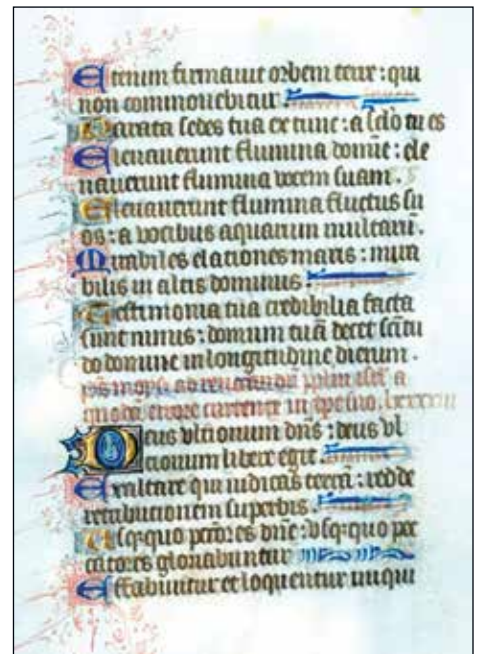 Etenim firmauit orbem terre : qui
non commouebitur.
Parata sedes tua ex tunc : a sclo tu es
Eleuauerunt flumina domine : ele
uauerunt flumina uocem suam.
Eleuauerunt flumina fluctus su
os : a uocibus aquarum multarū.
Mirabiles elationes maris : mira
bilis in altis dominus.
Testimonia tua credibilia facta
sunt nimis : domum tuā decet sc̄itu
do domine in longitudine dierum.
errore currente in
Deus vltionum dn̄s : deus vl
tionum libere egit.
Exaltare qui iudicas terrā : redde
retributionem superbis.
Vsqꝫquo pctōres dn̄e : vsqꝫquo pec
catores gloriabuntur
Effabuntur et loquentur iniqui